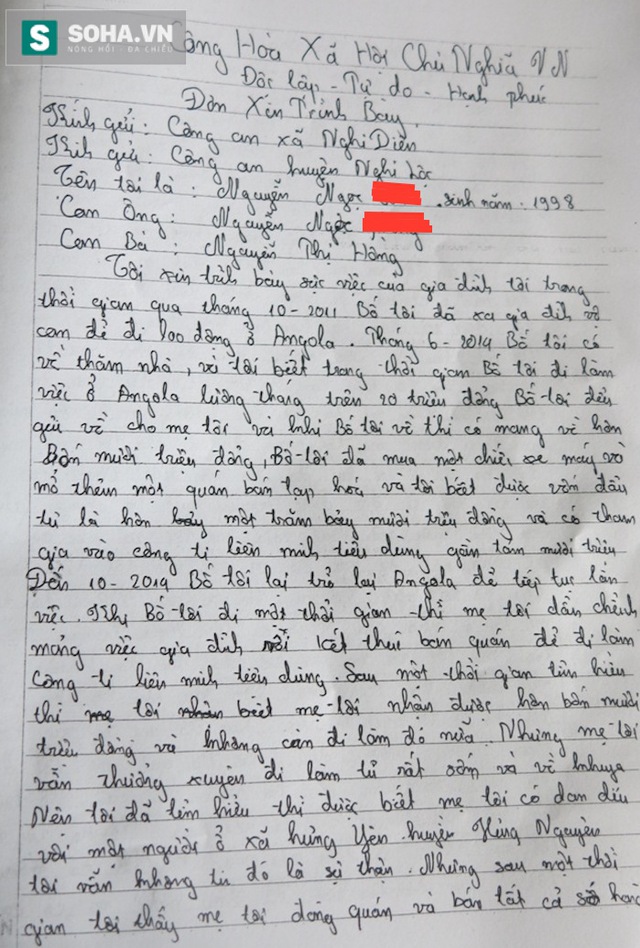 SOHA.VN
NÓNG HỔI - ĐA CHIỀU
Cộng Hòa Xã Hội Chủ Nghĩa VN
Độc lập - Tự do - Hạnh phúc
Đơn Xin Trình Bày
Kính gửi: Công an xã Nghi Diên
Kính gửi: Công an huyện Nghi Lộc
Tên tôi là: Nguyễn Ngọc sinh năm: 1998
Con Ông: Nguyễn Ngọc
Con Bà: Nguyễn Thị Hồng
Tôi xin trình bày sực việc của gia đình tôi trong
thời gian qua tháng 10-2011 Bố tôi đã xa gia đình vợ
con để đi lao động ở Angola. Tháng 6-2014 Bố tôi có
về thăm nhà, và tôi biết trong thời gian Bố tôi đi làm
việc ở Angola lương tháng trên 20 triệu đồng Bố tôi đều
gửi về cho mẹ tôi và khi Bố tôi về thì có mang về hơn
Bốn mươi triệu đồng, Bố tôi đã mua một chiếc xe máy và
mở thêm một quán bán tạp hoá và tôi biết được vốn đầu
tư là hơn bảy một trăm bảy mươi triệu đồng và có tham
gia vào công ti liên minh tiêu dùng gần tám mươi triệu
Đến 10-2014 Bố tôi lại trở lại Angola để tiếp tục làm
việc. Khi Bố tôi đi một thời gian thì mẹ tôi dần chểnh
mảng việc gia đình rồi kết thúc bán quán để đi làm
Công ti liên minh tiêu dùng. Sau một thời gian tìm hiểu
thì mẹ tôi nhận biết mẹ tôi nhận được hơn bốn mươi
triệu đồng và không còn đi làm đó nữa. Nhưng mẹ tôi
vẫn thường xuyên đi làm từ rất sớm và về khuya
Nên tôi đã tìm hiểu thì được biết mẹ tôi có dan díu
với một người ở xã hưng Yên huyện Hưng Nguyên
tôi vẫn không tin đó là sự thận. Nhưng sau một thời
gian tôi thấy mẹ tôi đóng quán và bán tất cả số hàng